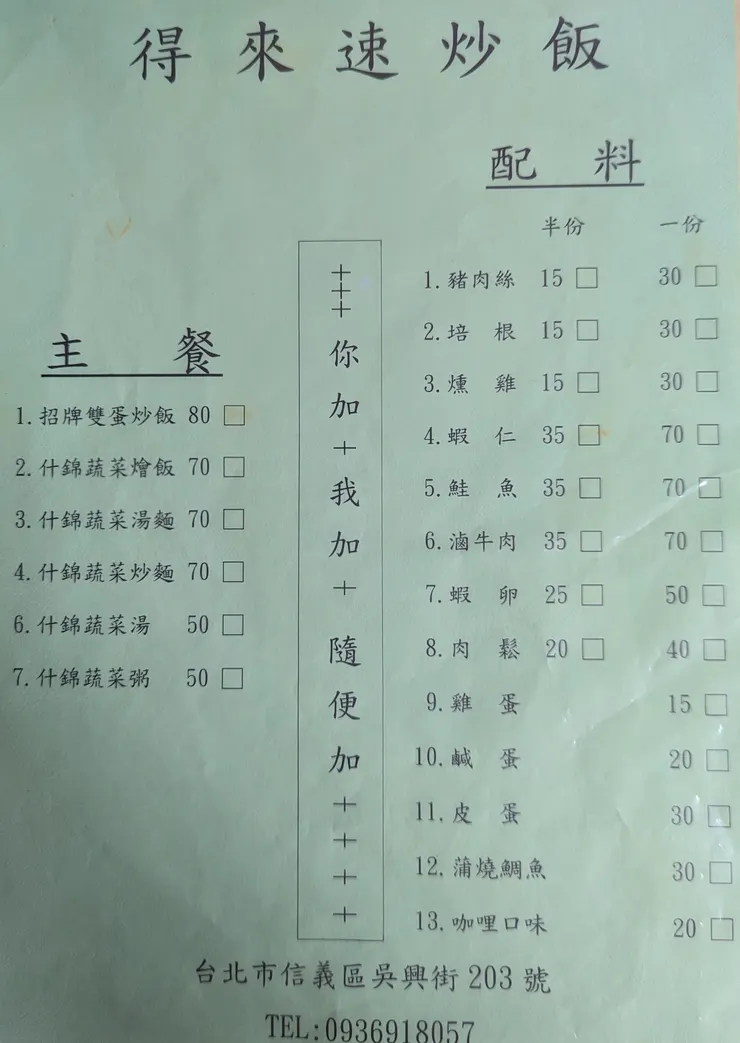 得來速炒飯
主 餐
1.招牌雙蛋炒飯 80 □
2.什錦蔬菜燴飯 70 □
3.什錦蔬菜湯麵 70 □
4.什錦蔬菜炒麵 70 □
6.什錦蔬菜湯 50 □
7.什錦蔬菜粥 50 □
+++你加+我加+隨便加++++
配 料
半份 一份
1.豬肉絲 15 □ 30 □
2.培 根 15 □ 30 □
3.燻 雞 15 □ 30 □
4.蝦 仁 35 □ 70 □
5.鮭 魚 35 □ 70 □
6.滷牛肉 35 □ 70 □
7.蝦 卵 25 □ 50 □
8.肉 鬆 20 □ 40 □
9.雞 蛋 15 □
10.鹹 蛋 20 □
11.皮 蛋 30 □
12.蒲燒鯛魚 30 □
13.咖哩口味 20 □
台北市信義區吳興街 203 號
TEL:0936918057